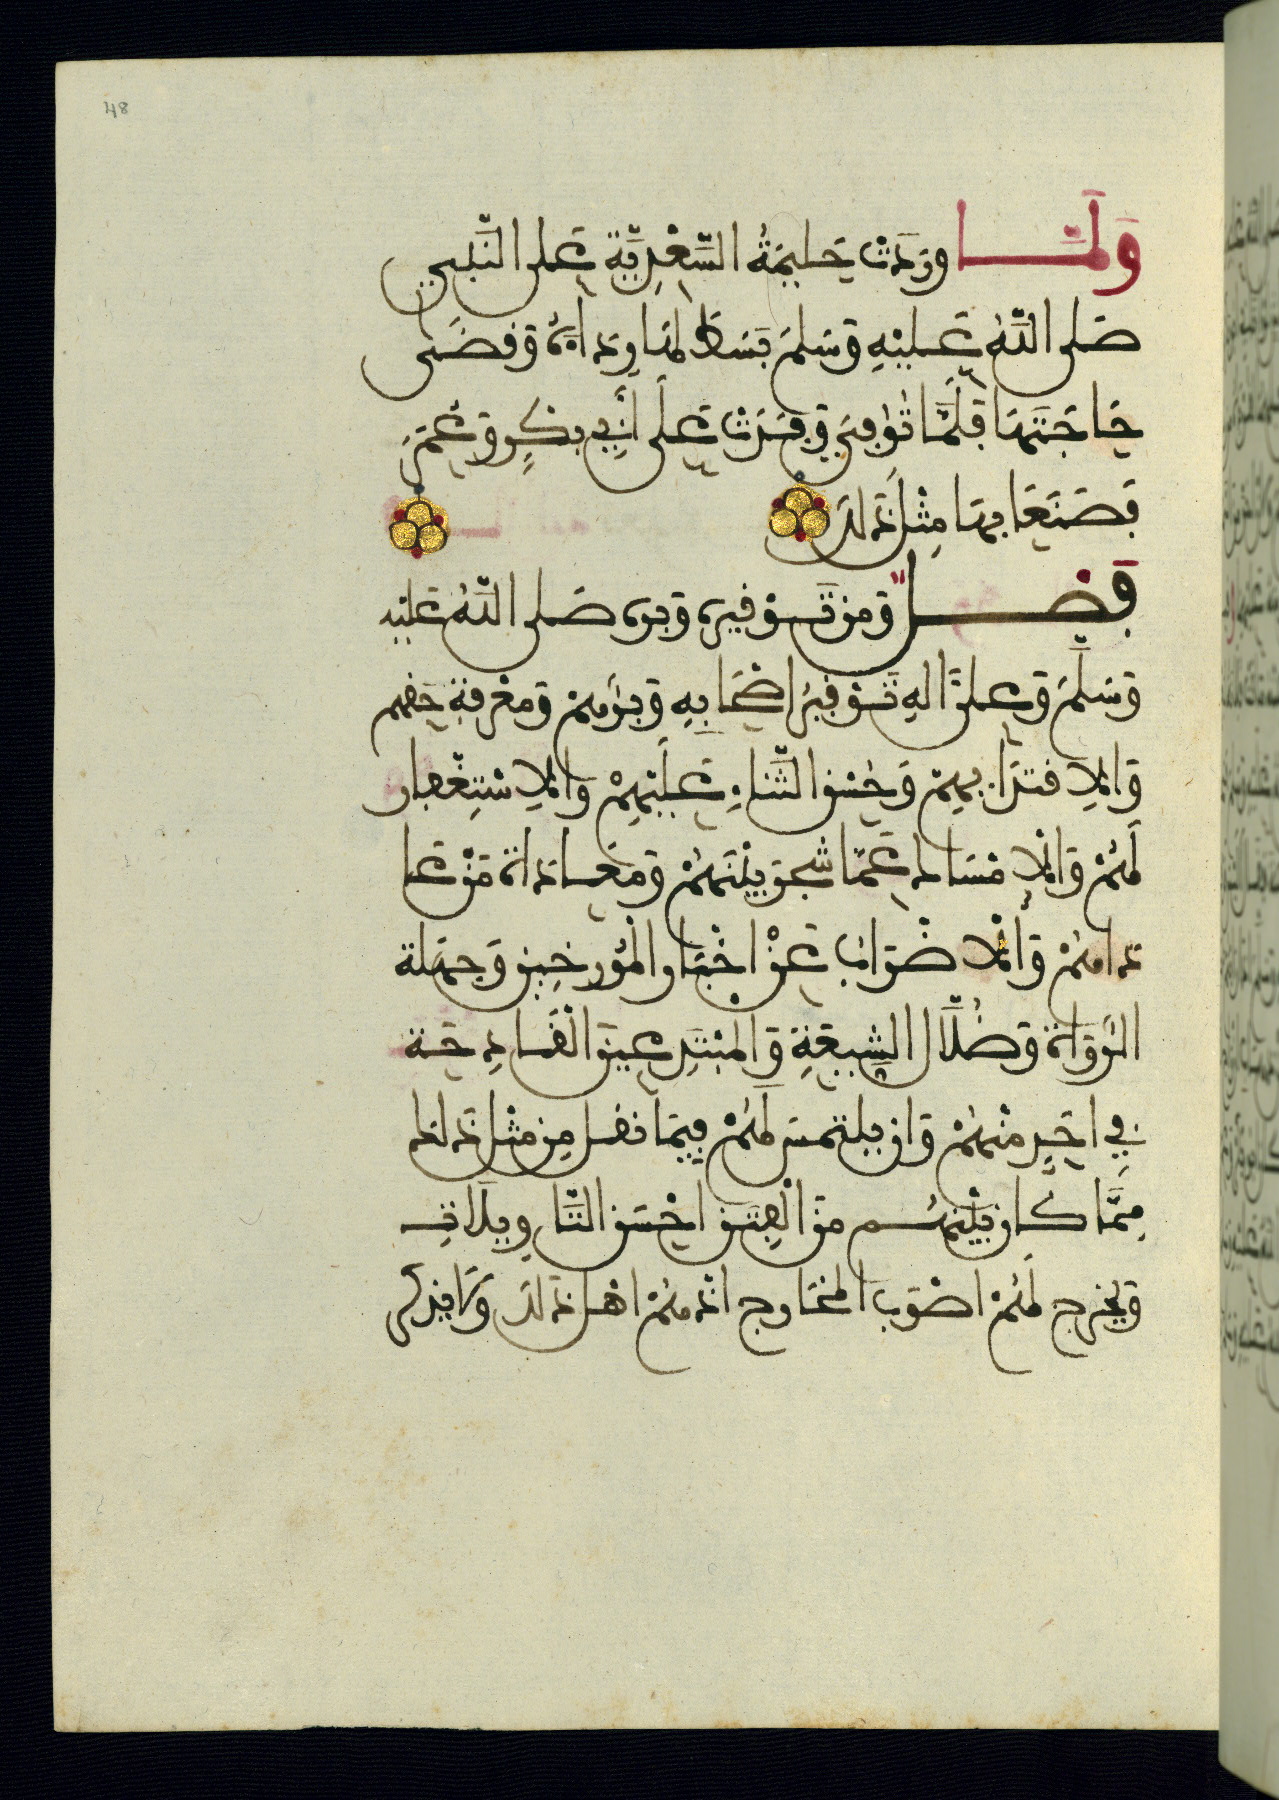 48
وَلَمَّا وَرَدَتْ حَلِيمَةُ السَّعْدِيَّةُ عَلَى النَّبِيِّ
صَلَى اللَّهُ عَلَيْهِ وَسَلَّمَ بَسَطَ لَهَا رِدَاءَهُ وَقَضَى
حَاجَتَهَا فَلَمَّا تُوُفِّيَ وَفَدَتْ عَلَى أَبِي بَكْرٍ وَعُمَرَ
فَصَنَعَا بِهَا مِثْلَ ذَلِكَ
فَصْلٌ وَمِنْ تَوْقِيرِهِ وَبِرِّهِ صَلَى اللَّهُ عَلَيْهِ
وَسَلَّمَ وَعَلَى ءَالِهِ تَوْقِيرُ أَصْحَابِهِ وَبِرُّهُمْ وَمَعْرِفَةُ حَقِّهِمْ
وَالِاقْتِدَاءُ بِهِمْ وَحُسْنُ الثَّنَاءِ عَلَيْهِمْ وَالِاسْتِغْفَارُ
لَهُمْ وَالْإِمْسَاكُ عَمَّا شَجَرَ بَيْنَهُمْ وَمُعَادَاةُ مَنْ عَا
دَاهُمْ وَالْإِضْرَابُ عَنْ أَخْبَارِ الْمُؤَرِّخِينَ وَجَهَلَةِ
الرُّوَاةِ وَضُلَّالِ الشِّيعَةِ وَالْمُبْتَدِعِينَ الْقَادِحَةِ
فِي أَحَدٍ مِنْهُمْ وَأَنْ يُلْتَمَسَ لَهُمْ فِيمَا نُقِلَ مِنْ مِثْلِ ذَلِكَ
مِمَّا كَانَ بَيْنَهُمْ مِنَ الْفِتَنِ أَحْسَنُ التَّأْوِيلَاتِ
وَيُخَرَّجَ لَهُمْ أَصْوَبُ الْمَخَارِجِ إِذْ هُمْ أَهْلُ ذَلِكَ وَلَا يُذْكَرَ